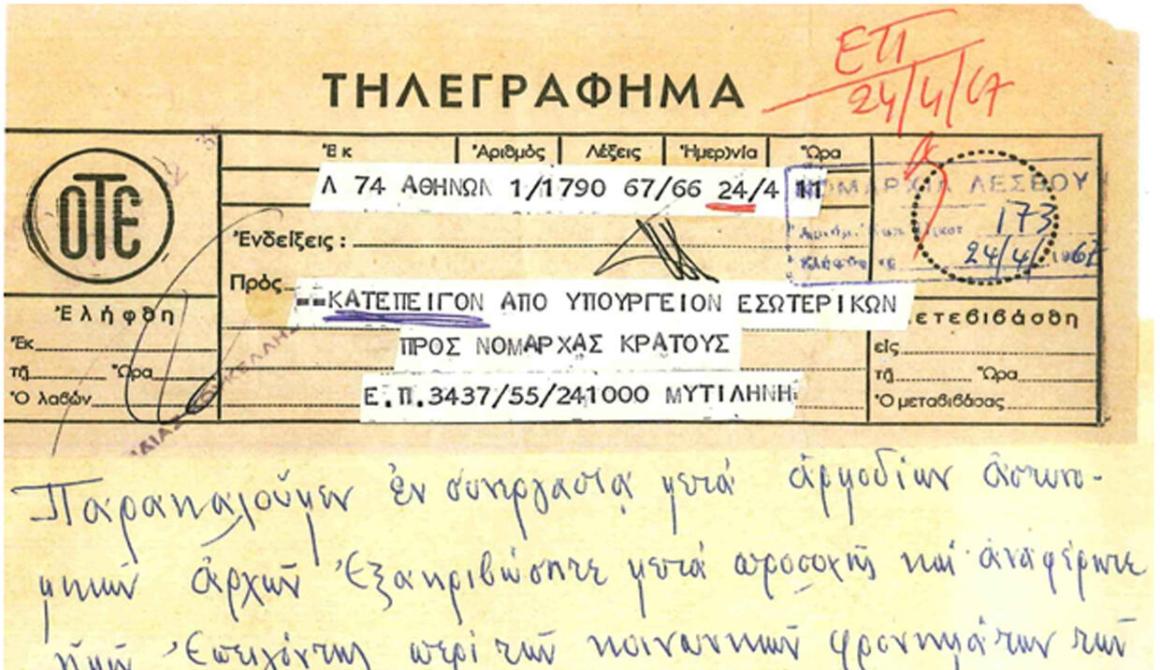 ΕΠ
24/4/67
ΤΗΛΕΓΡΑΦΗΜΑ
ΟΤΕ
Ἐκ Ἀριθμὸς Λέξεις Ἡμερ)νία Ὥρα
Λ 74 ΑΘΗΝΩΝ 1/1790 67/66 24/4
ΝΟΜΑΡΧΙΑ ΛΕΣΒΟΥ
173
24/4/1967
Ἐνδείξεις :
Πρὸς
==ΚΑΤΕΠΕΙΓΟΝ ΑΠΟ ΥΠΟΥΡΓΕΙΟΝ ΕΣΩΤΕΡΙΚΩΝ
ΠΡΟΣ ΝΟΜΑΡΧΑΣ ΚΡΑΤΟΥΣ
Ε.Π.3437/55/241000 ΜΥΤΙΛΗΝΗ
Ἐλήφθη
Ἐκ
τῇ Ὥρα
Ὁ λαβὼν
ετεβιβάσθη
εἰς
τῇ Ὥρα
Ὁ μεταβιβάσας
Παρακαλοῦμεν ἐν συνεργασίᾳ μετά ἁρμοδίων ἀστυνο-
μικῶν ἀρχῶν ἐξακριβώσητε μετά προσοχῆς καί ἀναφέρητε
ἡμῖν ἐπειγόντως περί τῶν κοινωνικῶν φρονημάτων τῶν